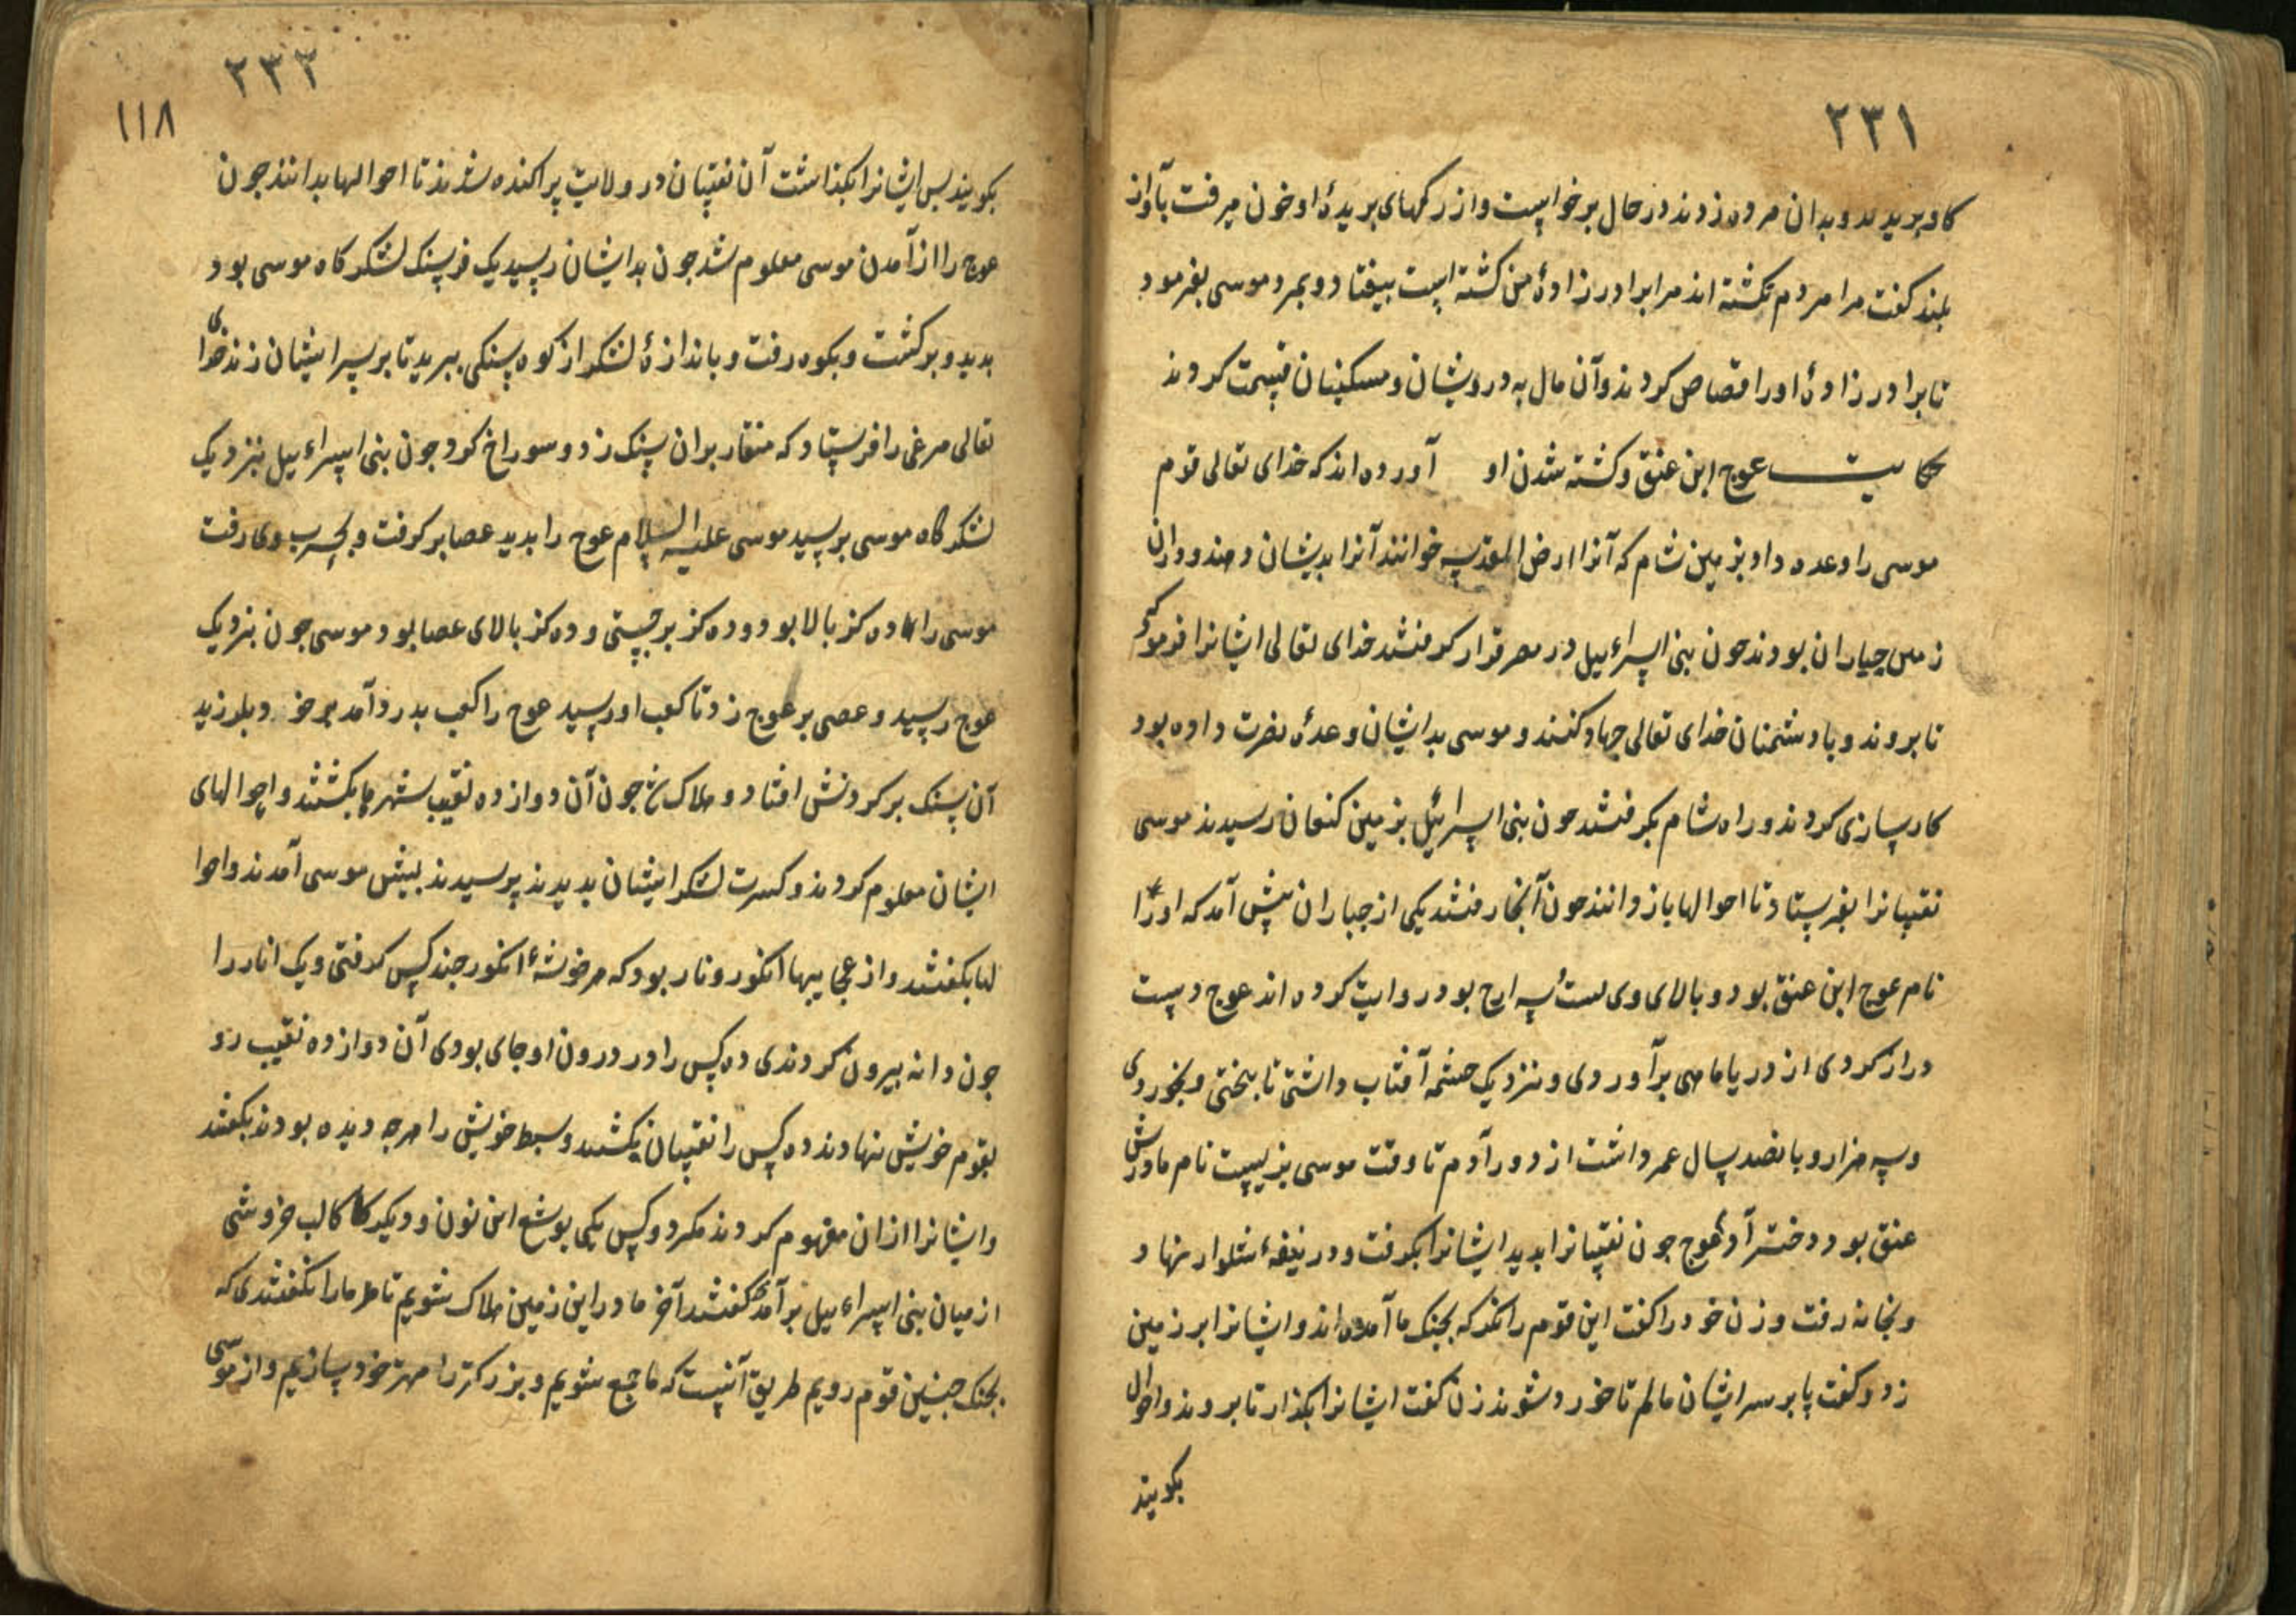 ٢٣١
كاو ببريدند و بدان مرده زدند در حال برخاست و از ركهاى بريدۀ او خون ميرفت بآواز
بلند كفت مرا مردم نكشته اند مرا برادرزادۀ من كشته است بيفتاد و بمرد موسى بفرمود
تا برادرزادۀ او را قصاص كردند و آن مال به درويشان و مسكينان قسمت كردند
حكايت عوج ابن عنق و كشته شدن او آورده اند كه خداى تعالى قوم
موسى را وعده داد بزمين شام كه آنرا ارض المقدسه خوانند آنرا بديشان دهند و دران
زمين جباران بودند جون بنى اسراءيل در مصر قرار كرفتند خداى تعالى ايشانرا فرمود كه
تا بروند و با دشمنان خداى تعالى جهاد كنند و موسى بدايشان وعدۀ نصرت داده بود
كارسازى كردند و راه شام بكرفتند جون بنى اسرائيل بزمين كنعان رسيدند موسى
نقيبانرا بفرستاد تا احوالها باز دانند جون آنجا رفتند يكى از جباران پيش آمد كه او را
نام عوج ابن عنق بود و بالاى وى بود روايت كرده اند عوج دست
دراز كردى از دريا ماهى برآوردى و نزديك چشمه آفتاب داشتى تا بپختى و بخوردى
و سه هزار و پانصد سال عمر داشت از دور آدم تا وقت موسى بزيست نام مادرش
عنق بود دختر آدم عوج جون نقيبانرا بديد ايشانرا بكرفت و در نيفۀ شلوار نهاد
و بخانه رفت و زن خود را كفت اين قوم را نكر كه بجنك ما آمده اند و ايشانرا بر زمين
زد و كفت پا بر سر ايشان مالم تا خورد شوند زن كفت ايشانرا بكذار تا بروند و احوال
بكويند
٢٣٢
١١٨
بكويند پس ايشانرا بكذاشت آن نقيبان در ولايت پراكنده شدند تا احوالها بدانند جون
عوج را از آمدن موسى معلوم شد جون بدايشان رسيد يك فرسنك لشكركاه موسى بود
بديد و بركشت و بكوه رفت و باندازۀ لشكر از كوه سنكى ببريد تا بر سر ايشان زند خداى
تعالى مرغى را فرستاد كه منقار بران سنك زد و سوراخ كرد جون بنى اسراءيل بنزديك
لشكركاه موسى برسيد موسى عليه السلام عوج را بديد عصا بركرفت و بحرب وى رفت
موسى را ده كز بالا بود و ده كز برجستى و ده كز بالاى عصا بود موسى جون بنزديك
عوج رسيد و عصى بر عوج زد تا كعب او رسيد عوج را كعب بدرد آمد بر خود بلرزيد
آن سنك بر كردنش افتاد و هلاك شد جون آن دوازده نقيب شهرها بكشتند و احوالهاى
ايشان معلوم كردند و كسرت لشكر ايشان بديدند بترسيدند پيش موسى آمدند و احوا
لها بكفتند و از عجايبها انكور و نار بود كه هر خوشۀ انكور جند كس كرفتى و يك انار را
جون دانه بيرون كردندى ده كس را در درون او جاى بودى آن دوازده نقيب رو
بقوم خويش نهادند ده كس را نقيبان بكشتند و سبط خويش را هرجه ديده بودند بكفتند
و ايشانرا ازان مفهوم كردند مكر دو كس يكى يوشع ابن نون و ديكر كالب خروشى
از ميان بنى اسراءيل برآمد كفتند آخر ما در اين زمين هلاك شويم تا مارا نكفتندى كه
بجنك جنين قوم رويم طريق آنست كه ما جمع شويم و بزركتر را مهتر خود سازيم و از موسى